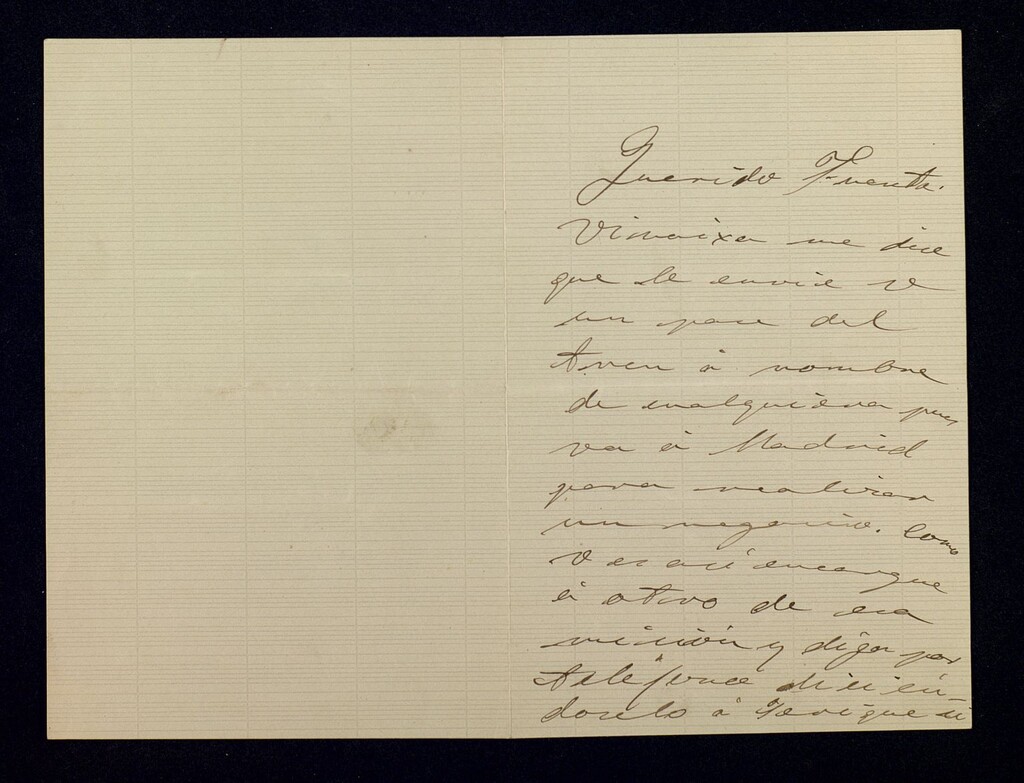 Querido Fuente.
Vinaixa me dice
que le envie
un pase del
tren á nombre
de cualquiera pues
va á Madrid
para realizar
un negocio. Como
V es asi encargue
á otro de esa
misión y diga por
telefono dicién-
doselo á si